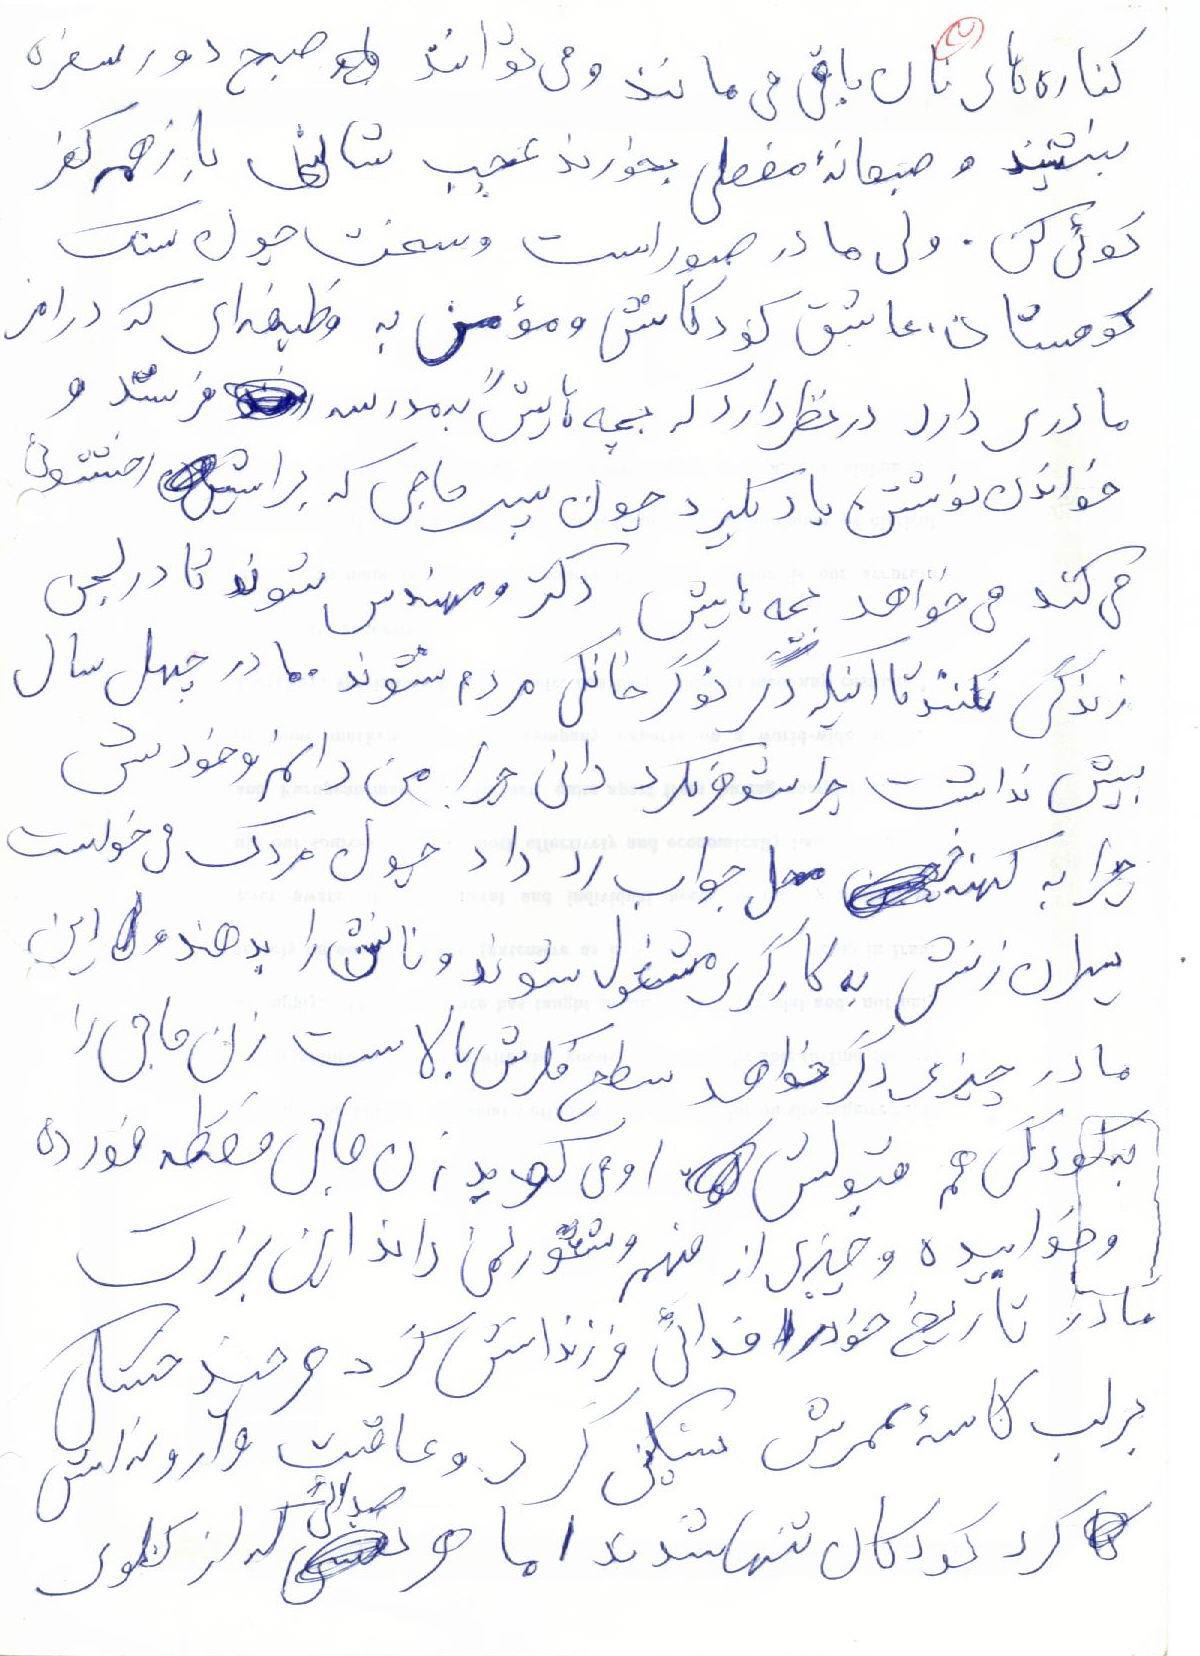 کناره های نان باقی می مانند و می توانند صبح دور سفره
بنشینند و صبحانهٔ مفصلی بخورند عجب شانسی باز هم کفر
گوئی کن. ولی مادر صبور است و سخت چون سنگ
کوهستان، عاشق کودکانش و مؤمن به وظیفه‌ای که در امر
مادری دارد در نظر دارد که بچه هایش به مدرسه فرستد و
خواندن نوشتن یاد بگیرد چون پسر حاجی که برایش رختشوئی
می کند می خواهد بچه هایش دکتر و مهندس شوند تا در لجن
زندگی نکنند تا اینکه دگر نوکر خانگی مردم شوند. مادر چهل سال
بیش نداشت چرا شوهر نکرد دانی چرا، من دانم و خودش
چرا به کهنه محل جواب رد داد چون مردک می خواست
پسران زنش به کارگری مشغول شوند و نانش را بدهند ولی این
مادر چیزی دگر خواهد سطح فکرش بالاست زن حاجی را
به کودکی هم قبولش او می گوید زن حاجی فقط خورده
و خوابیده و چیزی از فهم و شعور نمی داند این بزرگ
مادر تاریخ خود را فدائی فرزندانش کرد هر چند خستگی
بر لب کاسهٔ عمرش سنگینی کرد و عاقبت وارونه اش
کرد کودکان تنها شدند اما هر صدائی که از گلوی